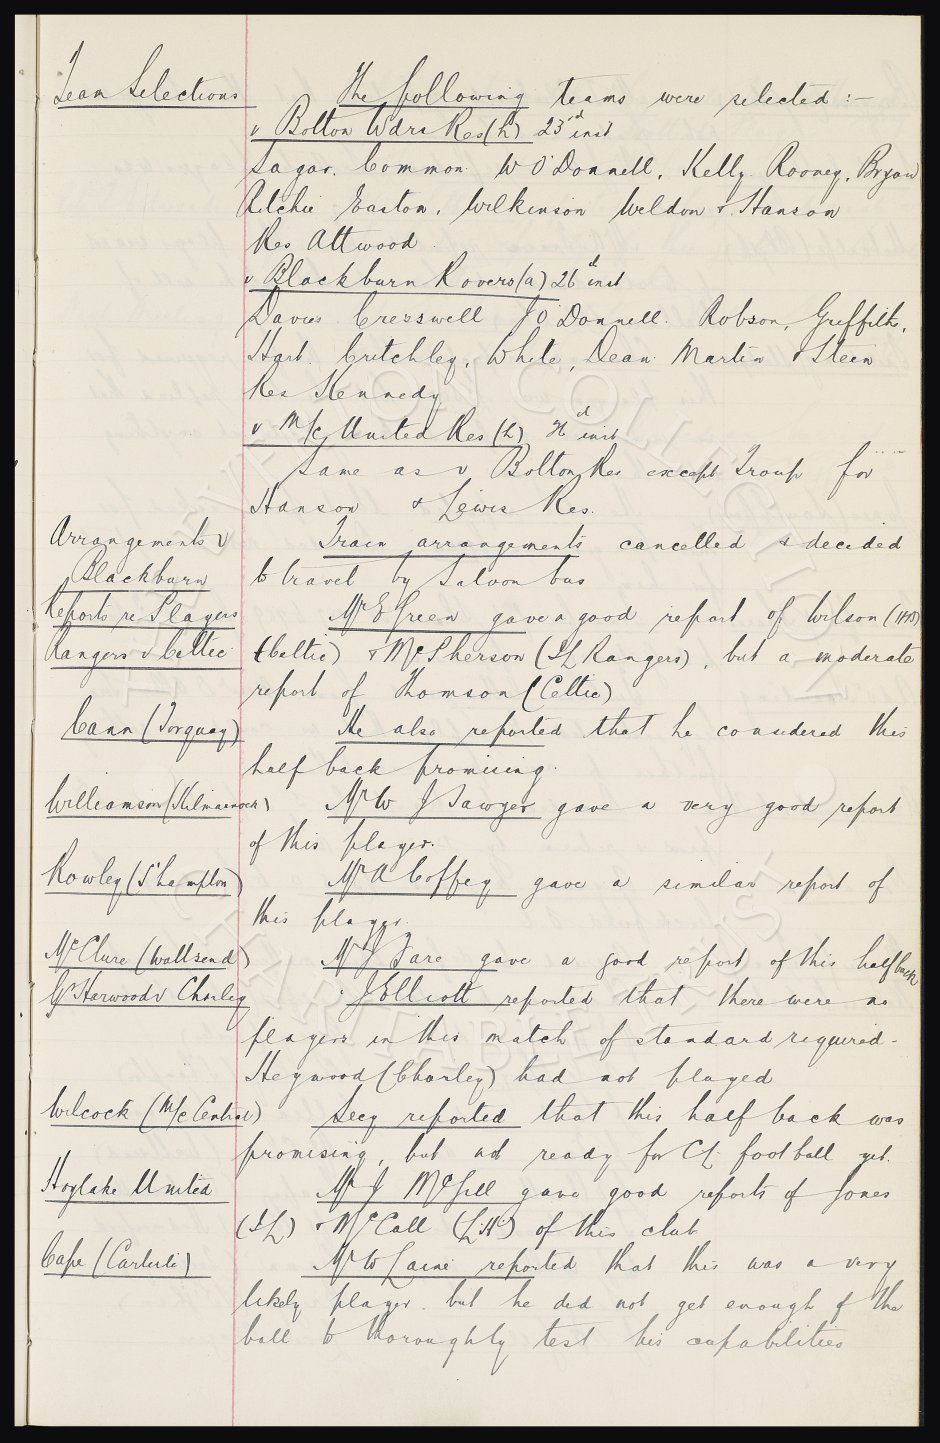 Team Selections The following teams were selected :-
v Bolton Wdrs Res (h) 23rd inst
Sagar. Common. W O'Donnell, Kelly Rooney, Bryan
Ritchie Easton, Wilkinson Weldon & Hanson
Res Attwood
v Blackburn Rovers (a) 26th inst
Davies Cresswell J O'Donnell. Robson, Griffiths,
Hart. Critchley, White, Dean Martin & Stein
Res Kennedy
v M/c United Res (h) inst
Same as v Bolton Res except Troup for
Hanson & Lewis Res.
Arrangements v Train arrangements cancelled & decided
Blackburn to travel by Saloon bus
Reports re Players Mr E Green gave a good report of Wilson (HB)
Rangers v Celtic (Celtic) & McPherson (IL Rangers), but a moderate
report of Thomson (Celtic)
Cann (Torquay) He also reported that he considered this
half back promising.
Williamson (Kilmarnock) Mr W J Sawyer gave a very good report
of this player.
Rowley (S'hampton) Mr A Coffey gave a similar report of
this player.
McClure (Wallsend) Mr J Fare gave a good report of this half back
Gt Harwood v Chorley J Elliott reported that there were no
players in this match of standard required -
Heywood (Chorley) had not played
Wilcock (M/c Central) Secy reported that this half back was
promising, but not ready for CL football yet.
Hoylake United Mr J McGill gave good reports of Jones
(IL) & McCall (LH) of this club
Cape (Carlisle) Mr W Laine reported that this was a very
likely player. but he did not get enough of the
ball to thoroughly test his capabilities